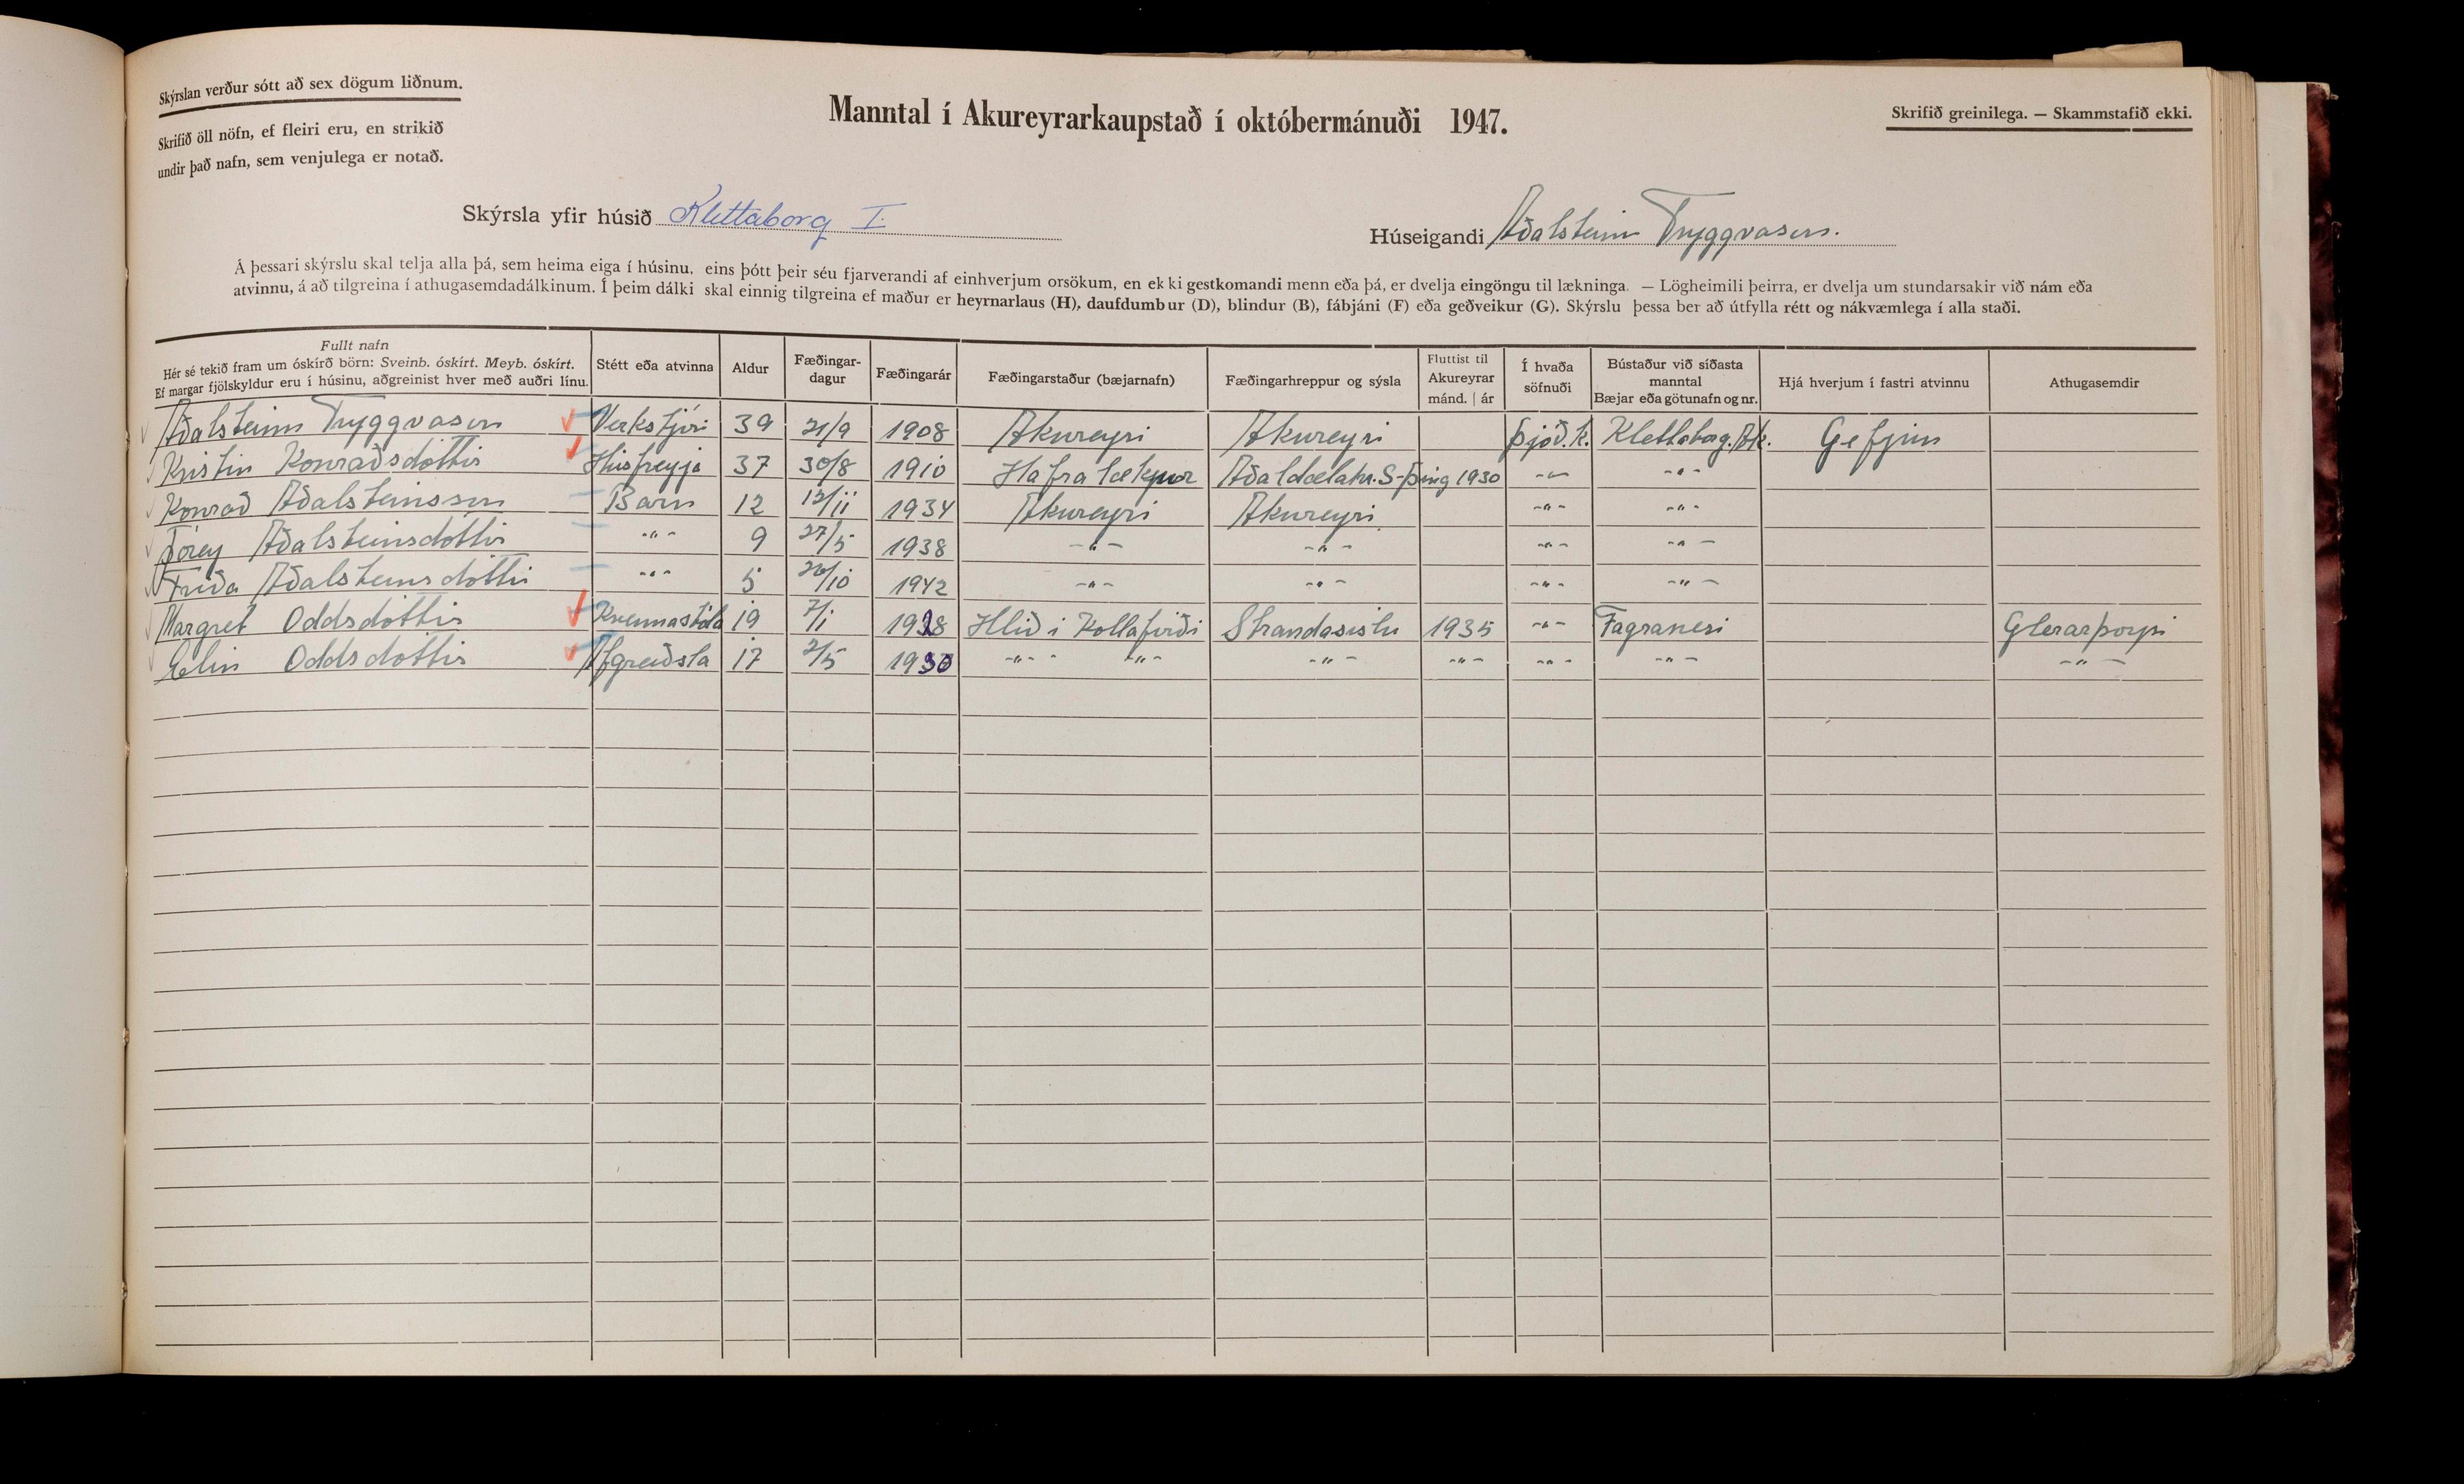 Skýrslan verður sótt að sex dögum liðnum.
Skrifið öll nöfn, ef fleiri eru, en strikið
undir það nafn, sem venjulega er notað.
Manntal í Akureyrarkaupstað í októbermánuði 1947.
Skrifið greinilega. — Skammstafið ekki.
Skýrsla yfir húsið Klettaborg I.
Húseigandi Aðalsteinn Tryggvason.
Á þessari skýrslu skal telja alla þá, sem heima eiga í húsinu, eins þótt þeir séu fjarverandi af einhverjum orsökum, en ekki gestkomandi menn eða þá, er dvelja eingöngu til lækninga. — Lögheimili þeirra, er dvelja um stundarsakir við nám eða
atvinnu, á að tilgreina í athugasemdadálkinum. Í þeim dálki skal einnig tilgreina ef maður er heyrnarlaus (H), daufdumbur (D), blindur (B), fábjáni (F) eða geðveikur (G). Skýrslu þessa ber að útfylla rétt og nákvæmlega í alla staði.
Fullt nafn
Hér sé tekið fram um óskírð börn: Sveinb. óskírt. Meyb. óskírt.
Ef margar fjölskyldur eru í húsinu, aðgreinist hver með auðri línu.
Stétt eða atvinna
Aldur
Fæðingar-
dagur
Fæðingarár
Fæðingarstaður (bæjarnafn)
Fæðingarhreppur og sýsla
Fluttist til
Akureyrar
mánd. | ár
Í hvaða
söfnuði
Bústaður við síðasta
manntal
Bæjar eða götunafn og nr.
Hjá hverjum í fastri atvinnu
Athugasemdir
Aðalsteinn Tryggvason Verkstjóri 39 21/9 1908 Akureyri Akureyri Þjóð.k. Klettaborg. Ak. Gefjun
Kristín Konraðsdóttir Húsfreyja 37 30/8 1910 Hafralækur Aðaldælahr. S-Þing 1930 -"- -"-
Konrað Aðalsteinsson Barn 12 12/11 1934 Akureyri Akureyri -"- -"-
Þórey Aðalsteinsdóttir -"- 9 27/5 1938 -"- -"- -"- -"-
Fríða Aðalsteinsdóttir -"- 5 26/10 1942 -"- -"- -"- -"-
Margret Oddsdóttir 19 7/1 1928 Hlið i Kollafirði Strandasislu 1935 -"- Fagranesi Glerarþorpi
Elin Oddsdóttir Afgreiðsla 17 2/5 1930 -"- -"- -"- -"- -"- -"- -"-